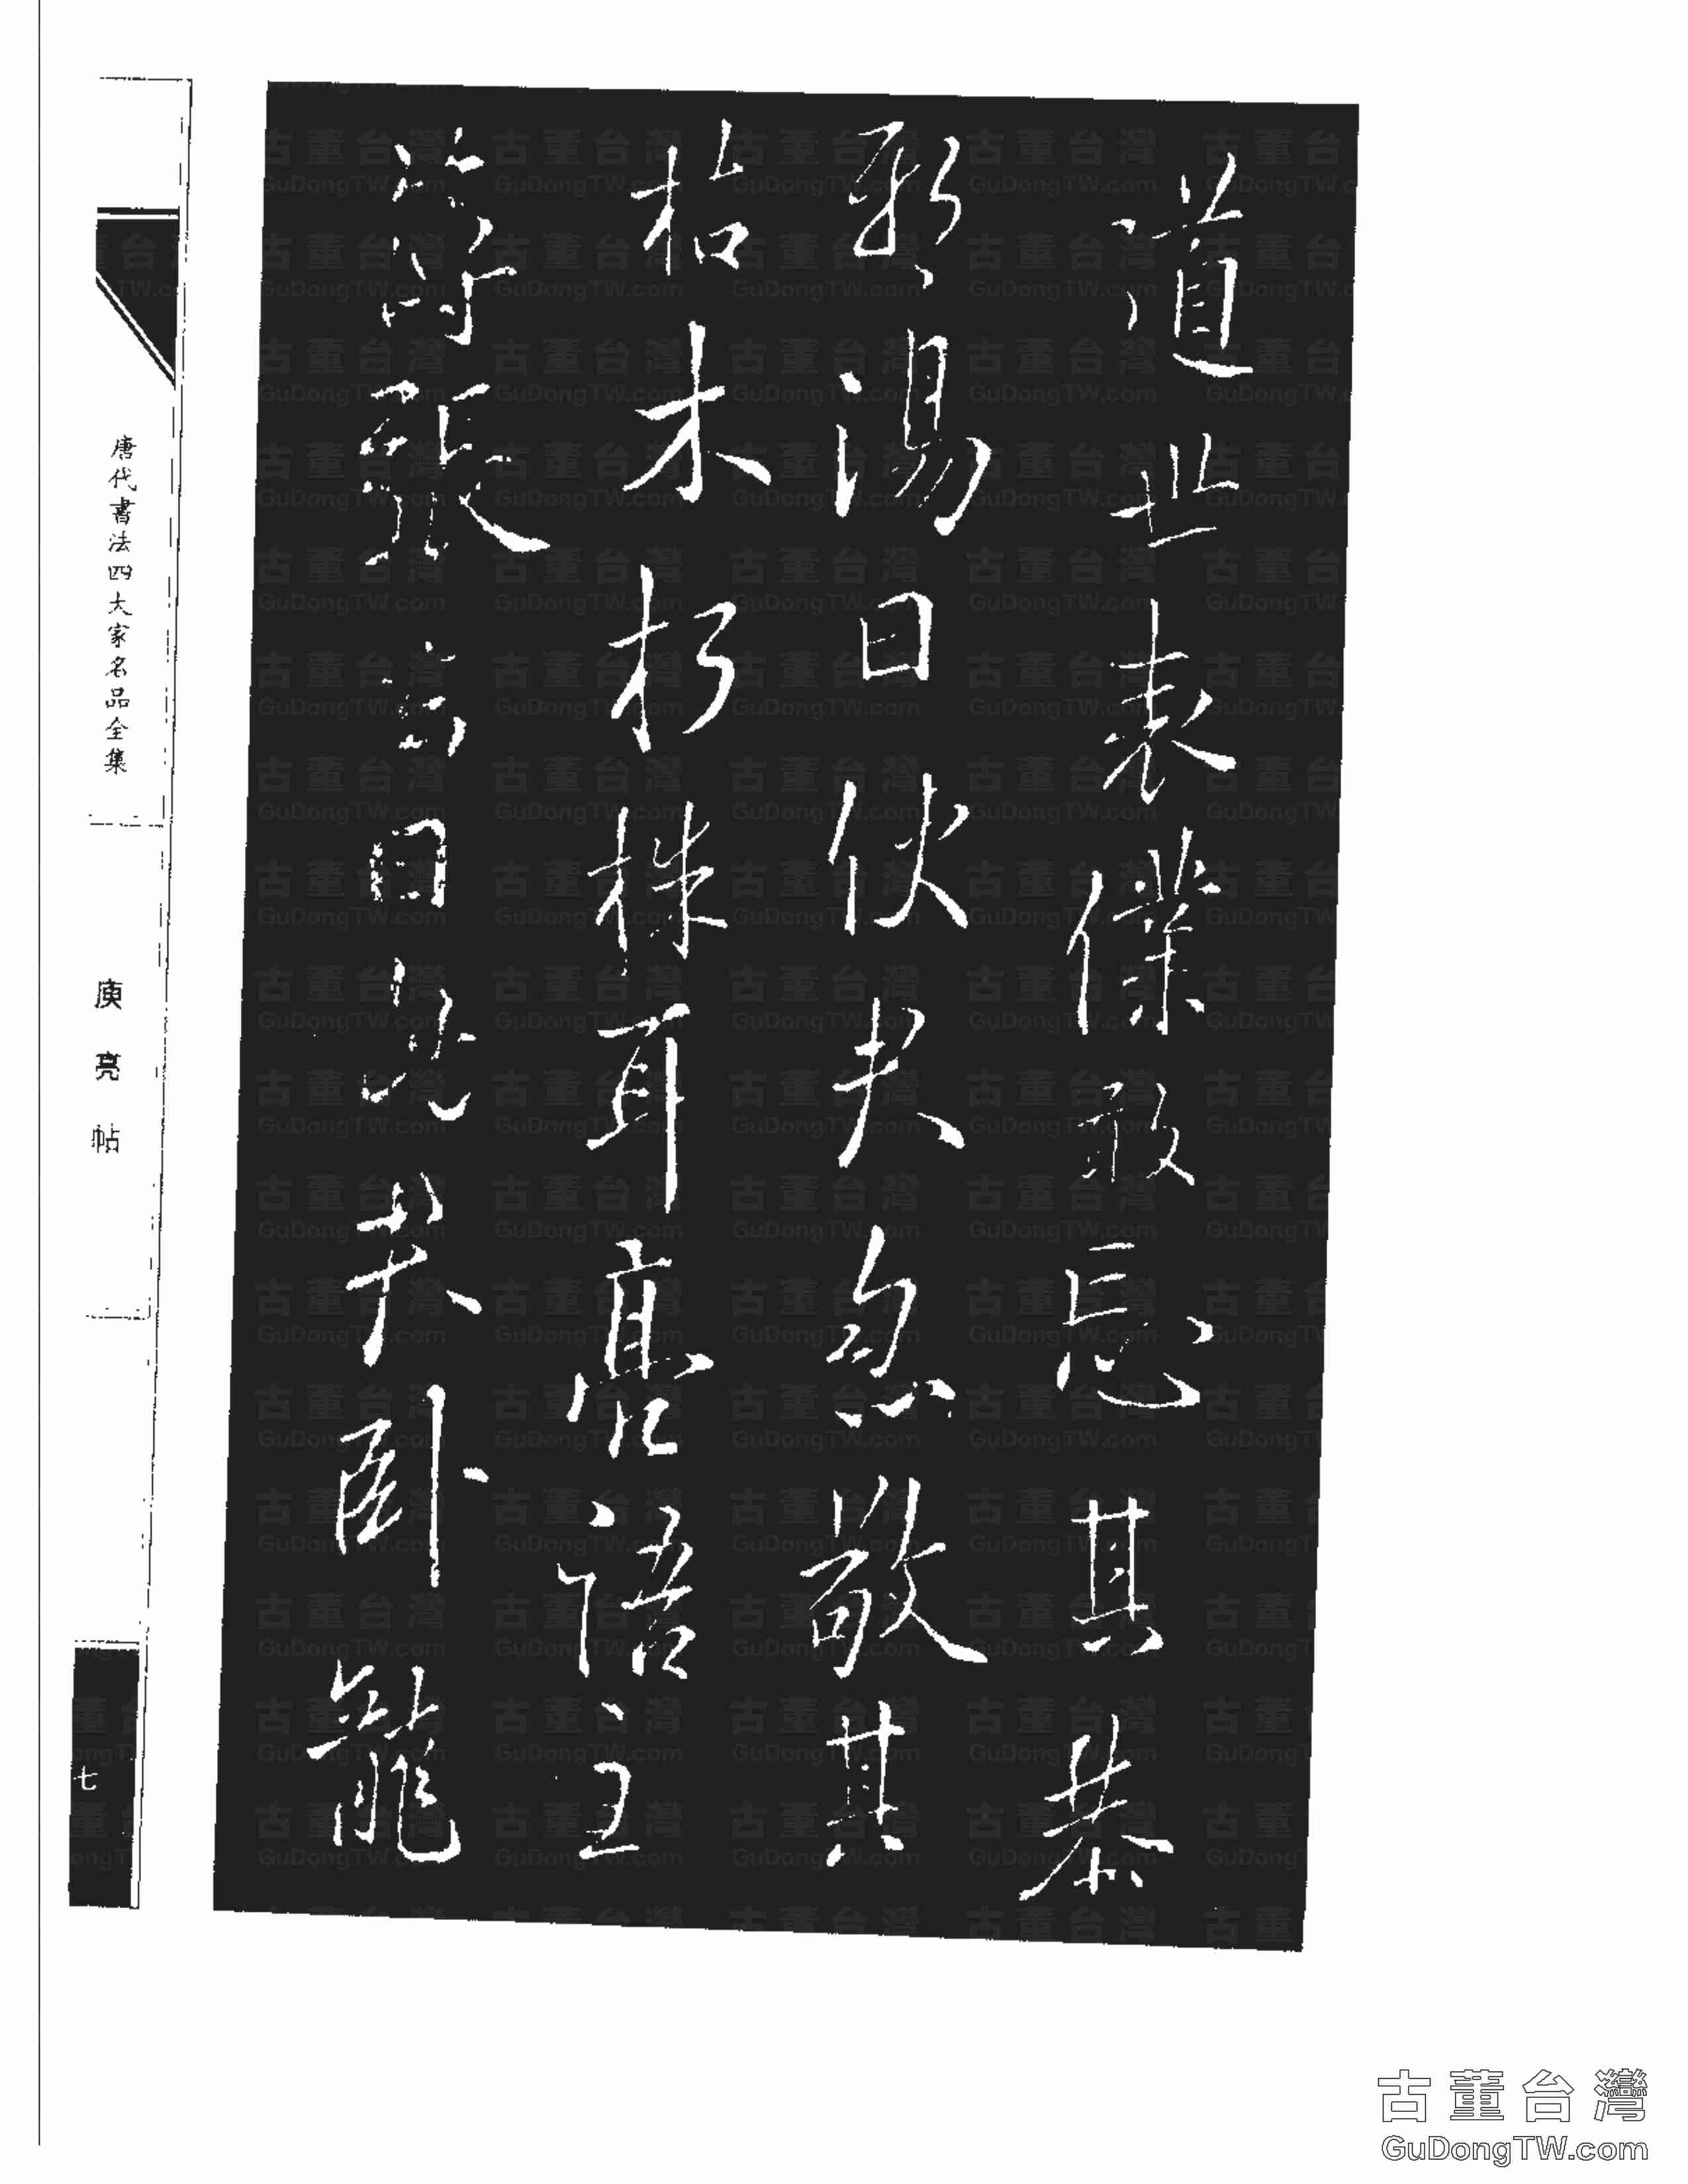 道世表僕敢忘其恭
湯曰伏夫忽敬其
枯木朽株耳亮語主
簿張曰此臥龍
唐代書法四大家名品全集
庾亮帖
七
古董台灣
GuDongTW.com